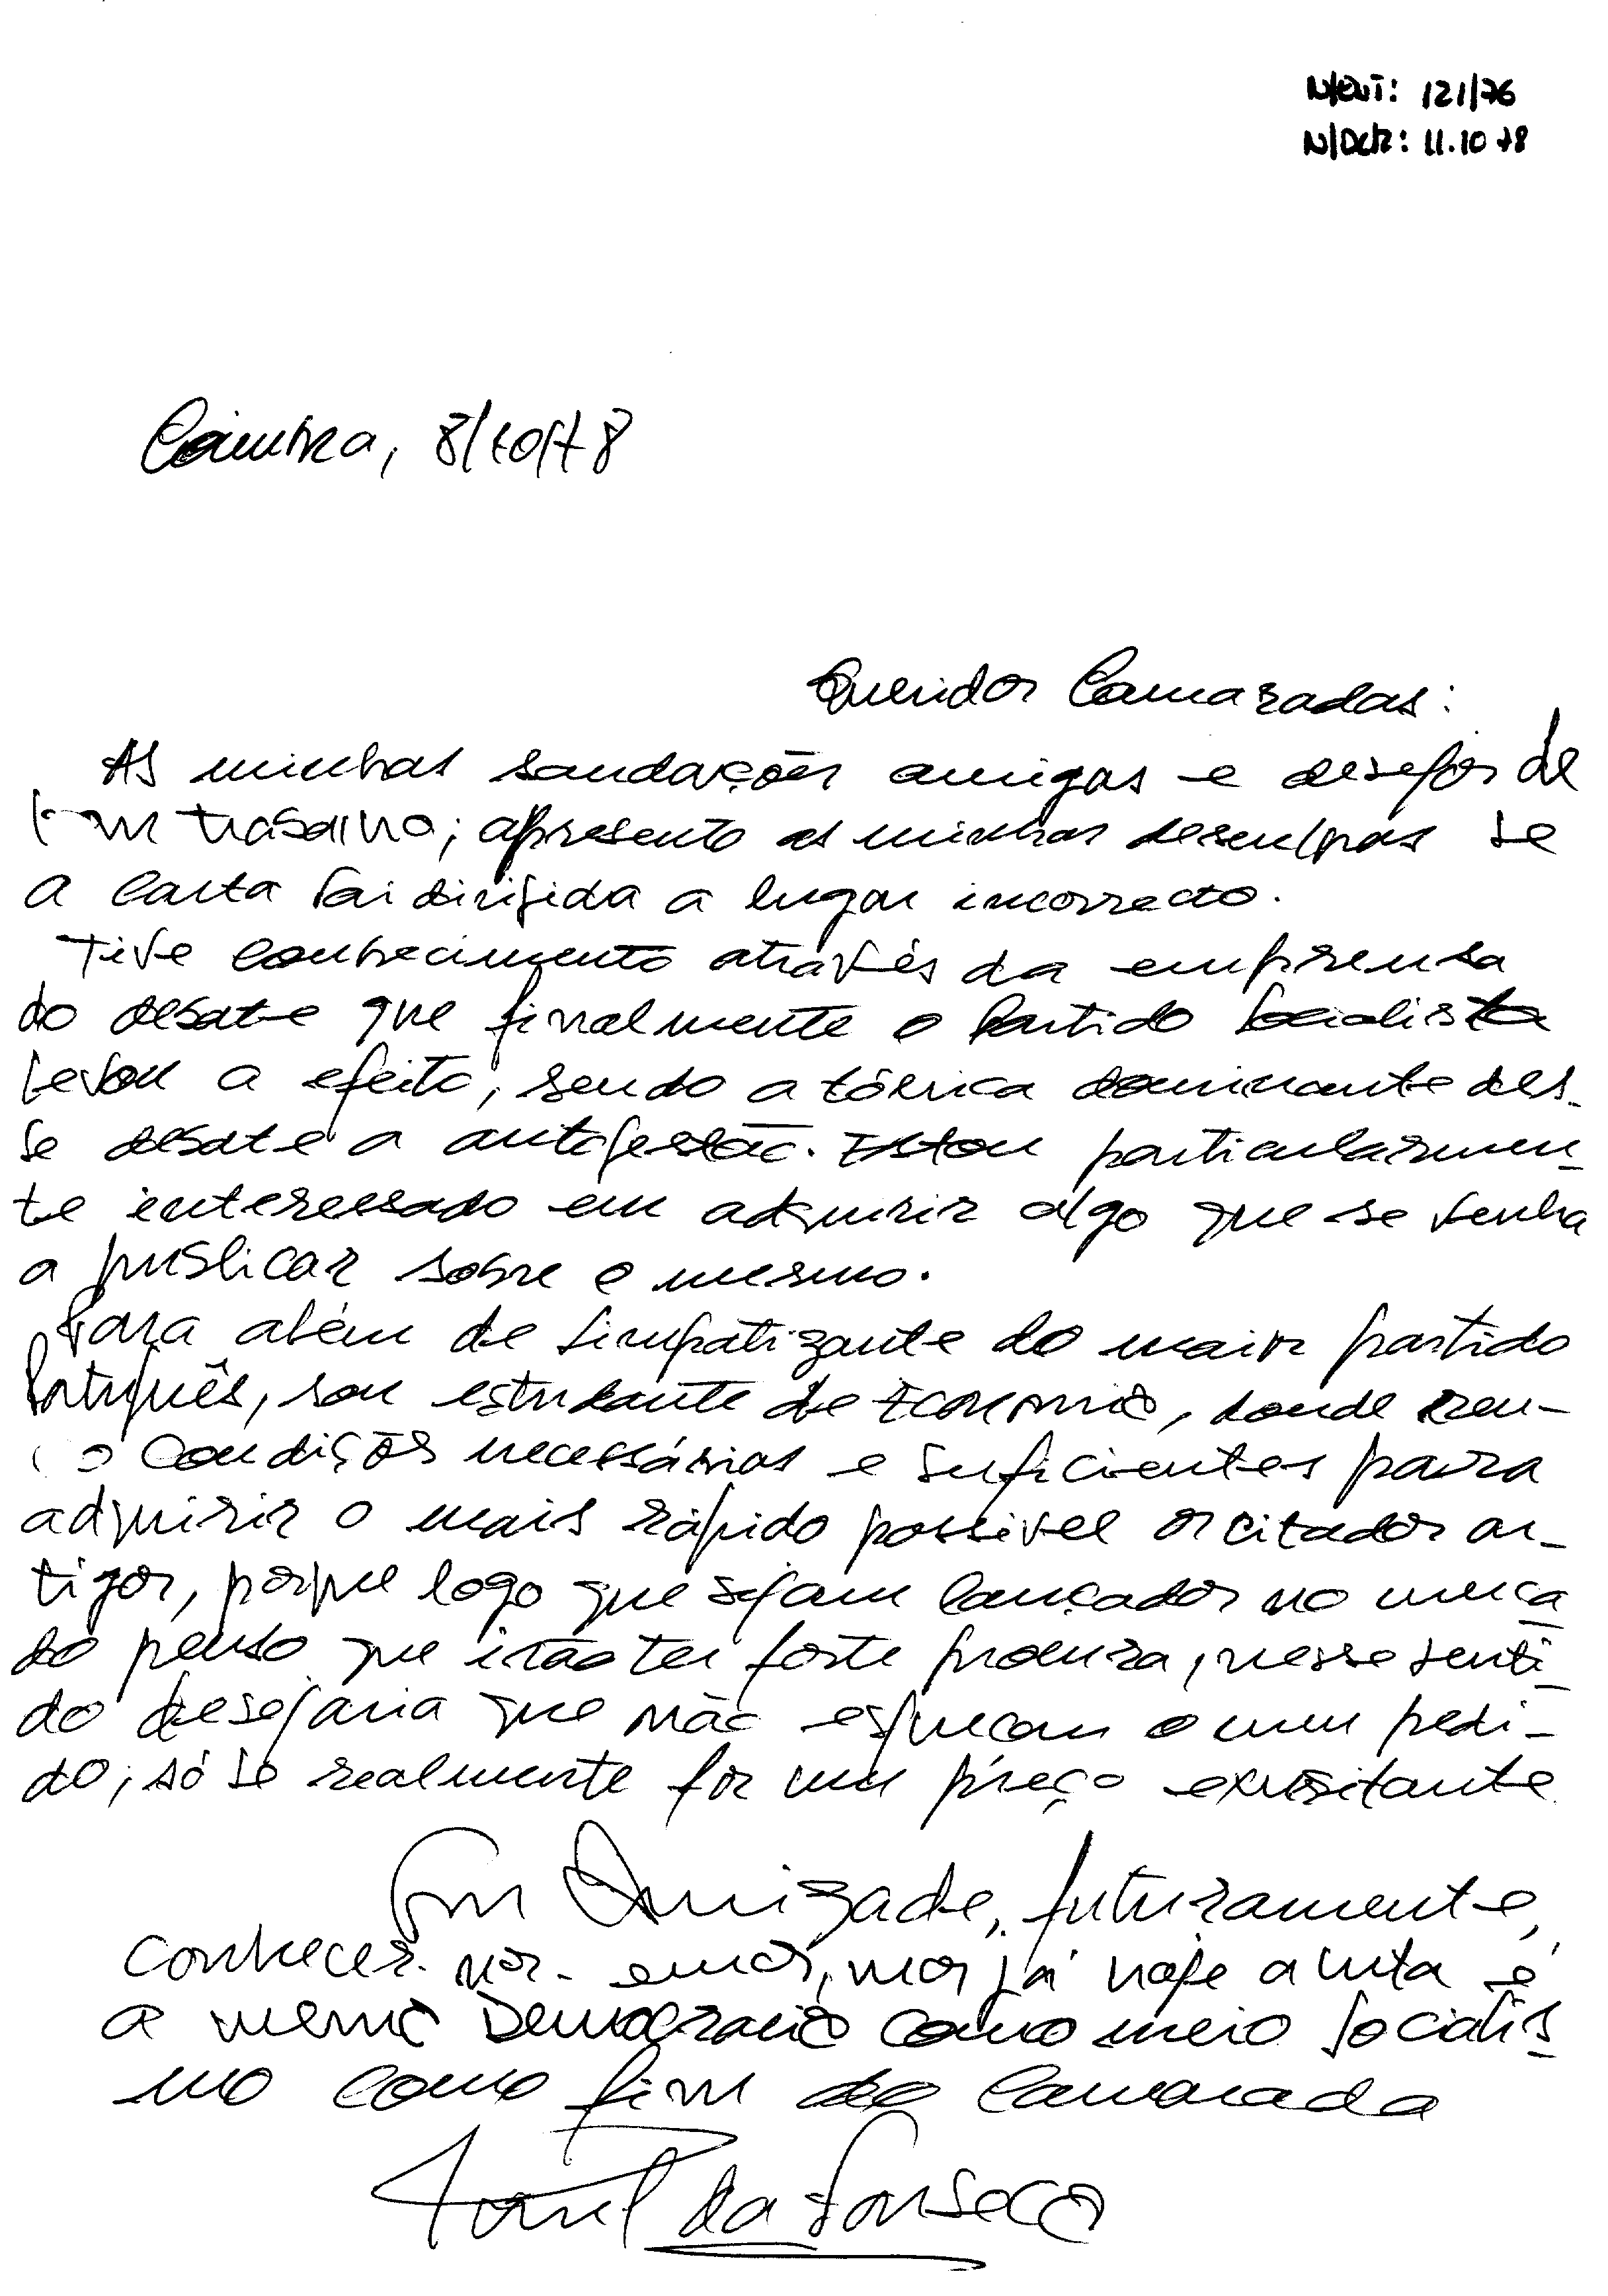 N/ENT: 121/76
N/DATA: 11.10 78
Coimbra, 8/10/78
Queridos Camaradas:
As minhas saudações amigas e desejos de
bom trabalho; apresento as minhas desculpas se
a carta sai dirigida a lugar incorrecto.
Tive conhecimento através da emprensa
do debate que finalmente o Partido Socialista
levou a efeito, sendo a tónica dominante des-
se debate a autogestão. Estou particularmen-
te interessado em adquirir algo que se venha
a publicar sobre o mesmo.
Para além de simpatizante do maior partido
Português, sou estudante de Economia, donde creu-
o condições necessárias e suficientes para
adquirir o mais rápido possível os citados ar-
tigos, porque logo que sejam lançados no merca-
do penso que irão ter forte procura, nesse senti-
do desejaria que não esqueçam o meu pedi-
do; só se realmente for um preço exorbitante
Em Amizade, futuramente,
conhecer-nos-emos, mas já hoje a luta é
a mesma Democracia como meio Socialis-
mo como fim do Camarada
da Fonseca